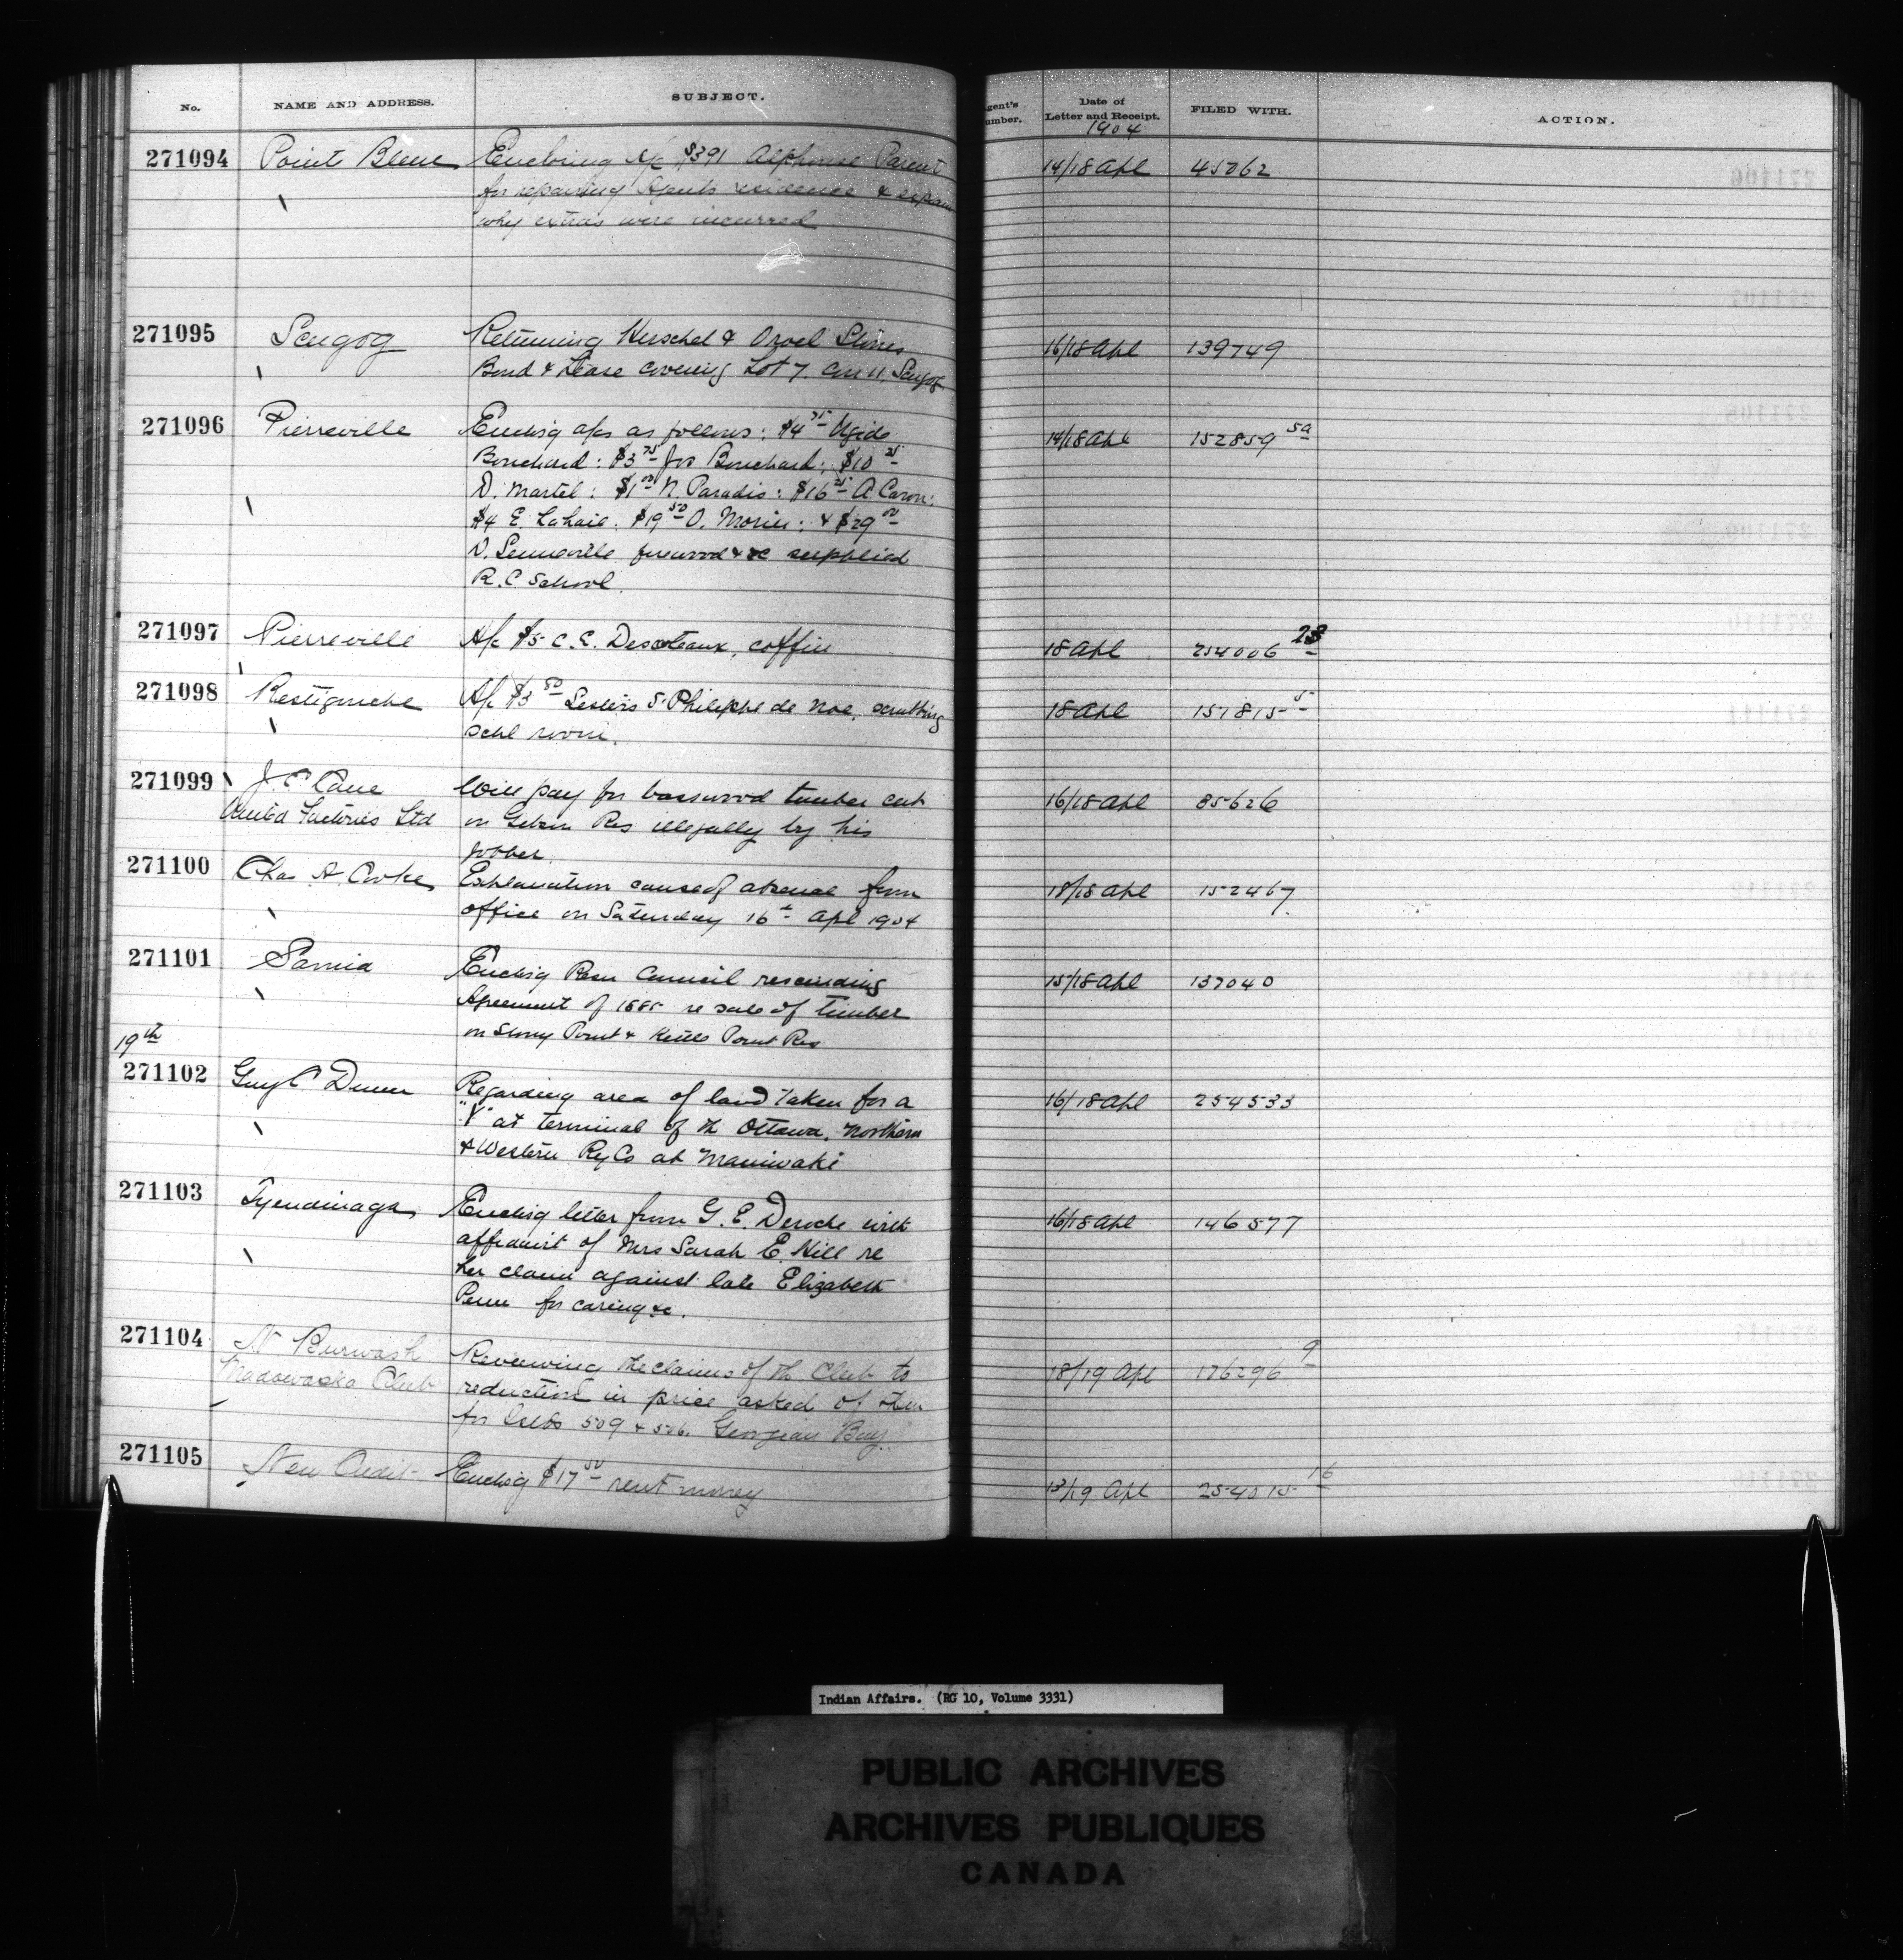 No. NAME AND ADDRESS. SUBJECT. gent's umber. Date of Letter and Receipt. FILED WITH. ACTION.
1904
271094 Point Bleue Enclosing A/c $391 Alphonse Parent 14/18 Apl 45062
for repairing Agents residence & explain
why extras were incurred
271095 Scugog Returning Herschel & Orvel 16/18 Apl 139749
Bond & Lease covering Lot 7. Con 11, Scugog
271096 Pierreville Enclosig a/cs as follows: $4 75 14/18 Apl 152859 5a
Bouchard: $3 75 Jos Bouchard: $10 25
D. Martel: $1 00 N. Paradis: $16 25 A. Caron:
$4 E. Lahaie. $19 50 O. Morin: & $29 00
D. Senneville firewood &c supplied
R.C. School.
271097 Pierreville A/c $5 C.E. Descoteaux, coffin 18 Apl 254006 28
271098 Restigouche A/c $3 50 Philippe de Noe, scrubbing 18 Apl 151815 5
schl room.
271099 J. C Cane Will pay for basswood timber cut 16/18 Apl 85626
United Factories Ltd on Gibson Res illegally by his
jobber.
271100 Chas A. Cooke Explanation cause of absence from 18/18 Apl 152467
office on Saturday 16th Apl 1904
271101 Sarnia Enclosig Resn Council rescinding 15/18 Apl 137040
Agreement of 1885 re sale of timber
on Stony Point & Kettle Point Res
19th
271102 Guy C Dunn Regarding area of land taken for a 16/18 Apl 254533
"Y" at terminal of th Ottawa, Northern
& Western Ry Co at Maniwaki
271103 Tyendinaga Enclosig letter from G. E. Deroche with 16/18 Apl 146577
affidavit of Mrs Sarah E. Hill re
her claim against late Elizabeth
Penn for caring &c.
271104 N Burwash Reviewing the claims of th Club to 18/19 Apl 176296 9
Madawaska Club reduction in price asked of them
for Islds 509 & 506. Georgian Bay
271105 New Credit Enclosig $17 50 rent money 13/19 Apl 254015 16
Indian Affairs. (RG 10, Volume 3331)
PUBLIC ARCHIVES
ARCHIVES PUBLIQUES
CANADA